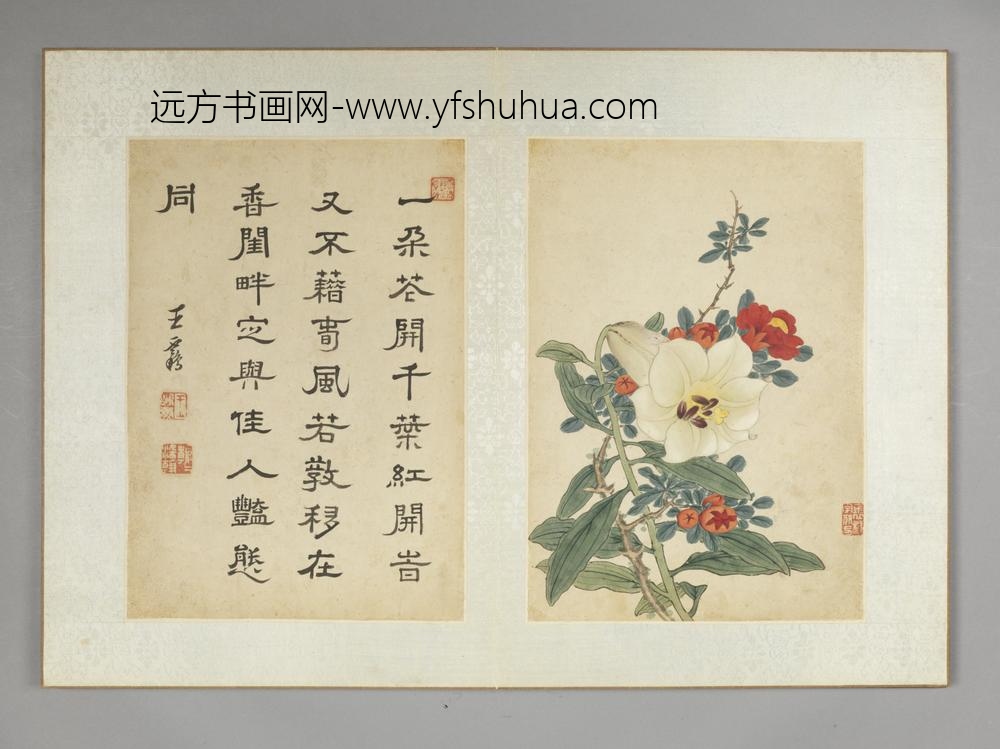 远方书画网-www.yfshuhua.com
一朵芲開千葉紅開旹
又不藉旾風若敎移在
香閨畔㝎與佳人豔態
同
王